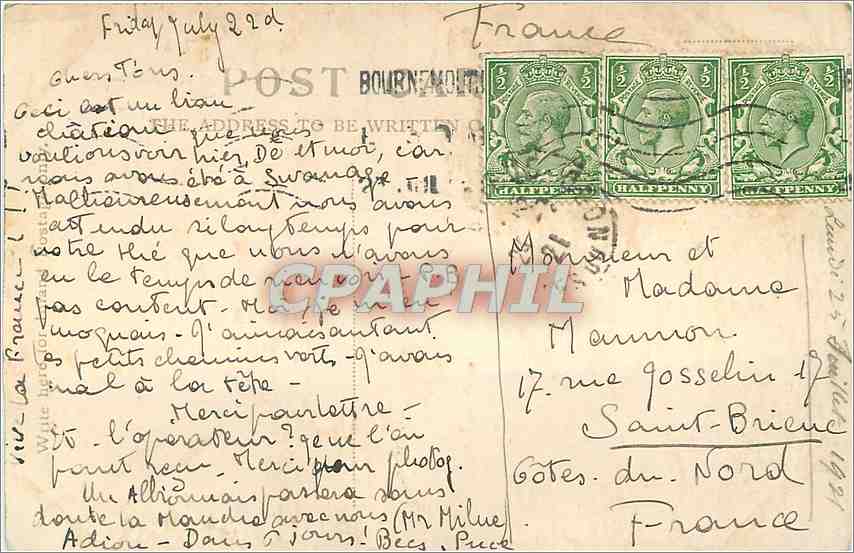 Friday July 22d.
France
POST CARD
BOURNEMOUTH
THE ADDRESS TO BE WRITTEN
½ ½
½ ½
½ ½
HALFPENNY
HALFPENNY
HALFPENNY
Chers Tous.
Ceci est un
château que nous
voulions voir hier, Dé et moi, car
nous avons été à Swanage
Malheureusement nous avons
attendu si longtemps pour
notre thé que nous n'avons
eu le temps de rien voir - P.B.
pas content - Moi, je m'en
moquais - J'aimais autant
les petits chemins verts - J'avais
mal à la tête -
Merci pour lettre -
Et - l'opérateur? je ne l'ai
point reçu. Merci pour photog.
Un Albionnais passera sans
doute la Manche avec nous (Mr Milne)
Adieu - Dans 5 jours! Becs, Puce
Vive la France!!!
Write here for Inland Postage only.
Monsieur et
Madame
Mannon.
17. rue Gosselin 17
Saint-Brieuc
Côtes-du-Nord
France
Lundi 25 Juillet 1921
CPAPHIL